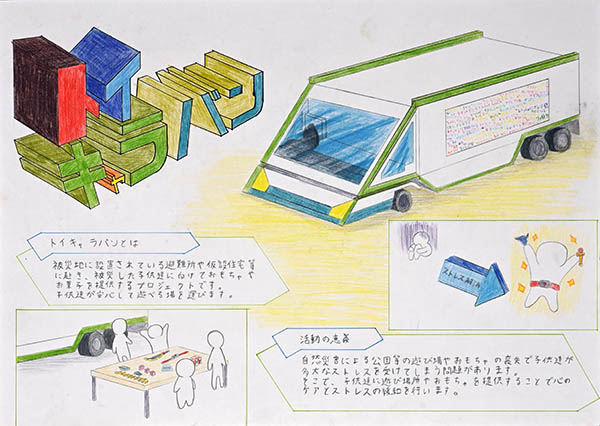 トイ
キャラバン
トイキャラバンとは
被災地に設置されている避難所や仮設住宅等
に赴き、被災した子供達に向けておもちゃや
お菓子を提供するプロジェクトです。
子供達が安心して遊べる場を運びます。
ストレス
活動の意義
自然災害による公園等の遊び場やおもちゃの喪失で子供達が
多大なストレスを受けてしまう問題があります。
そこで、子供達に遊び場所やおもちゃを提供することで心の
ケアとストレスの緩和を行います。